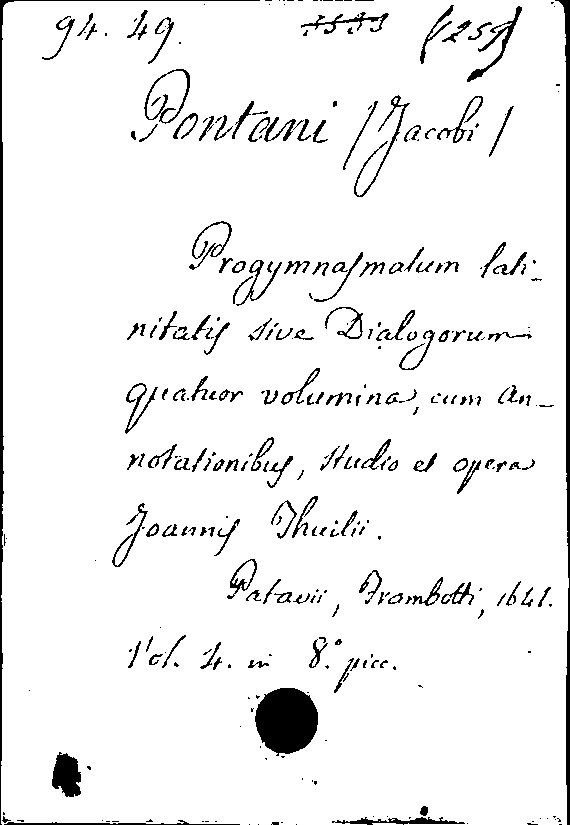 94. 49. (259)
Pontani (Jacobi)
Progymnasmatum lati-
nitatis sive Dialogorum
quatuor volumina, cum an-
notationibus, studio et opera
Joannis Thuilii.
Patavii, Frambotti, 1641.
Vol. 4. in 8.° picc.